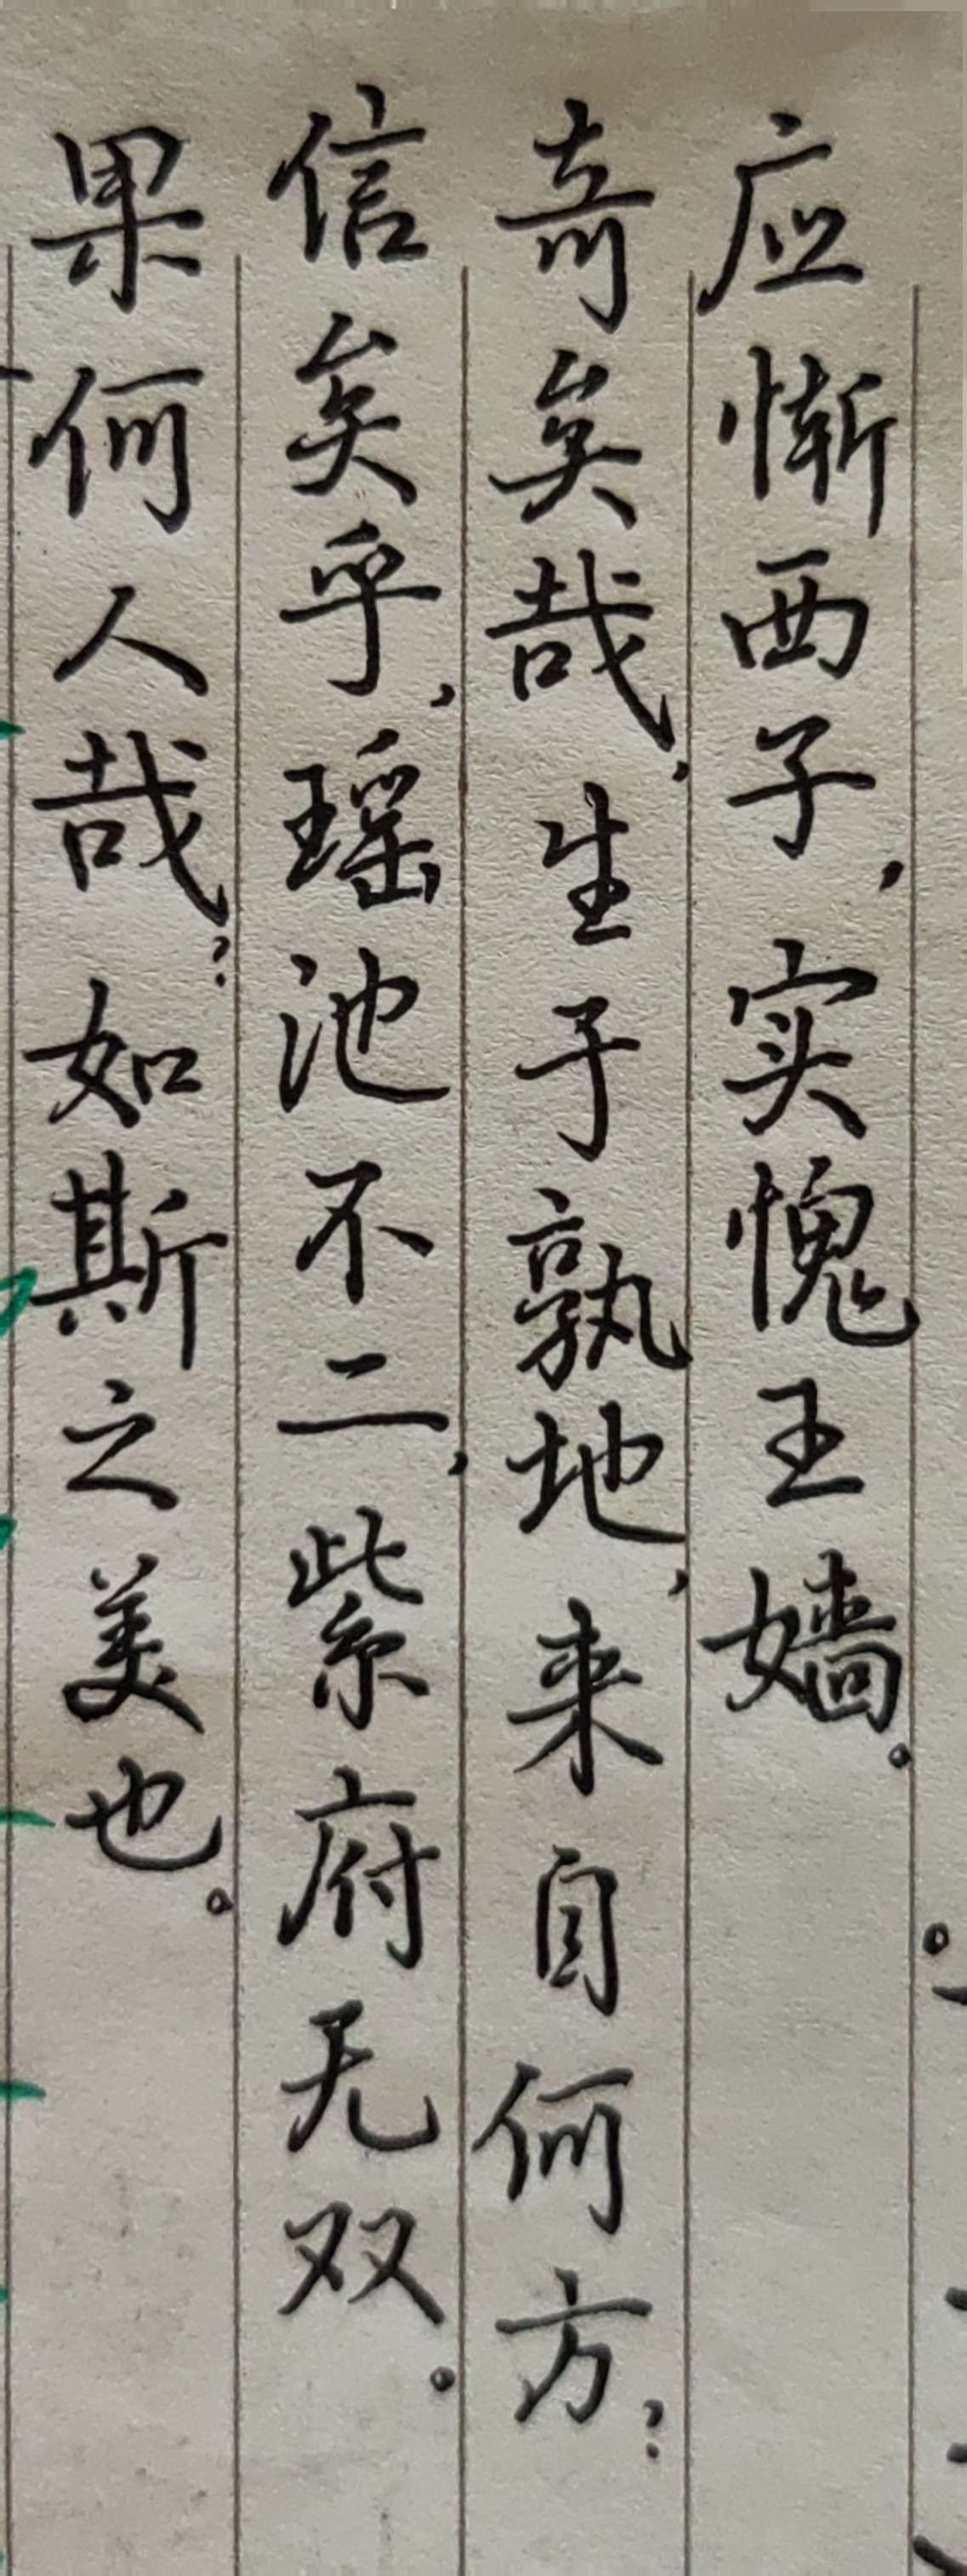 应惭西子，实愧王嫱。
奇矣哉，生于孰地，来自何方？
信矣乎，瑶池不二，紫府无双。
果何人哉？如斯之美也。